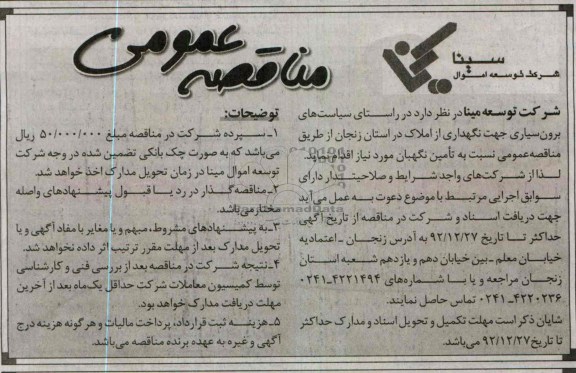 مناقصه عمومی
سینا
شرکت توسعه اموال
شرکت توسعه مینا در نظر دارد در راستای سیاست‌های
برون‌سپاری جهت نگهداری از املاک در استان زنجان از طریق
مناقصه عمومی نسبت به تأمین نگهبان مورد نیاز اقدام نماید.
لذا از شرکت‌های واجد شرایط و صلاحیتدار دارای
سوابق اجرایی مرتبط با موضوع دعوت به عمل می‌آید
جهت دریافت اسناد و شرکت در مناقصه از تاریخ آگهی
حداکثر تا تاریخ ۹۲/۱۲/۲۷ به آدرس زنجان - اعتمادیه
خیابان معلم - بین خیابان دهم و یازدهم شعبه استان
زنجان مراجعه و یا با شماره‌های ۴۲۲۱۴۹۴-۰۲۴۱
۴۲۲۰۲۳۶-۰۲۴۱ تماس حاصل نمایند.
شایان ذکر است مهلت تکمیل و تحویل اسناد و مدارک حداکثر
تا تاریخ ۹۲/۱۲/۲۷ می‌باشد.
توضیحات:
۱- سپرده شرکت در مناقصه مبلغ ۵۰/۰۰۰/۰۰۰ ریال
می‌باشد که به صورت چک بانکی تضمین شده در وجه شرکت
توسعه اموال مینا در زمان تحویل مدارک اخذ خواهد شد.
۲- مناقصه‌گذار در رد یا قبول پیشنهادهای واصله
مختار می‌باشد.
۳- به پیشنهادهای مشروط، مبهم و یا مغایر با مفاد آگهی و یا
تحویل مدارک بعد از مهلت مقرر ترتیب اثر داده نخواهد شد.
۴- نتیجه شرکت در مناقصه بعد از بررسی فنی و کارشناسی
توسط کمیسیون معاملات شرکت حداقل یک‌ماه بعد از آخرین
مهلت دریافت مدارک خواهد بود.
۵- هزینه ثبت قرارداد، پرداخت مالیات و هرگونه هزینه درج
آگهی و غیره به عهده برنده مناقصه می‌باشد.